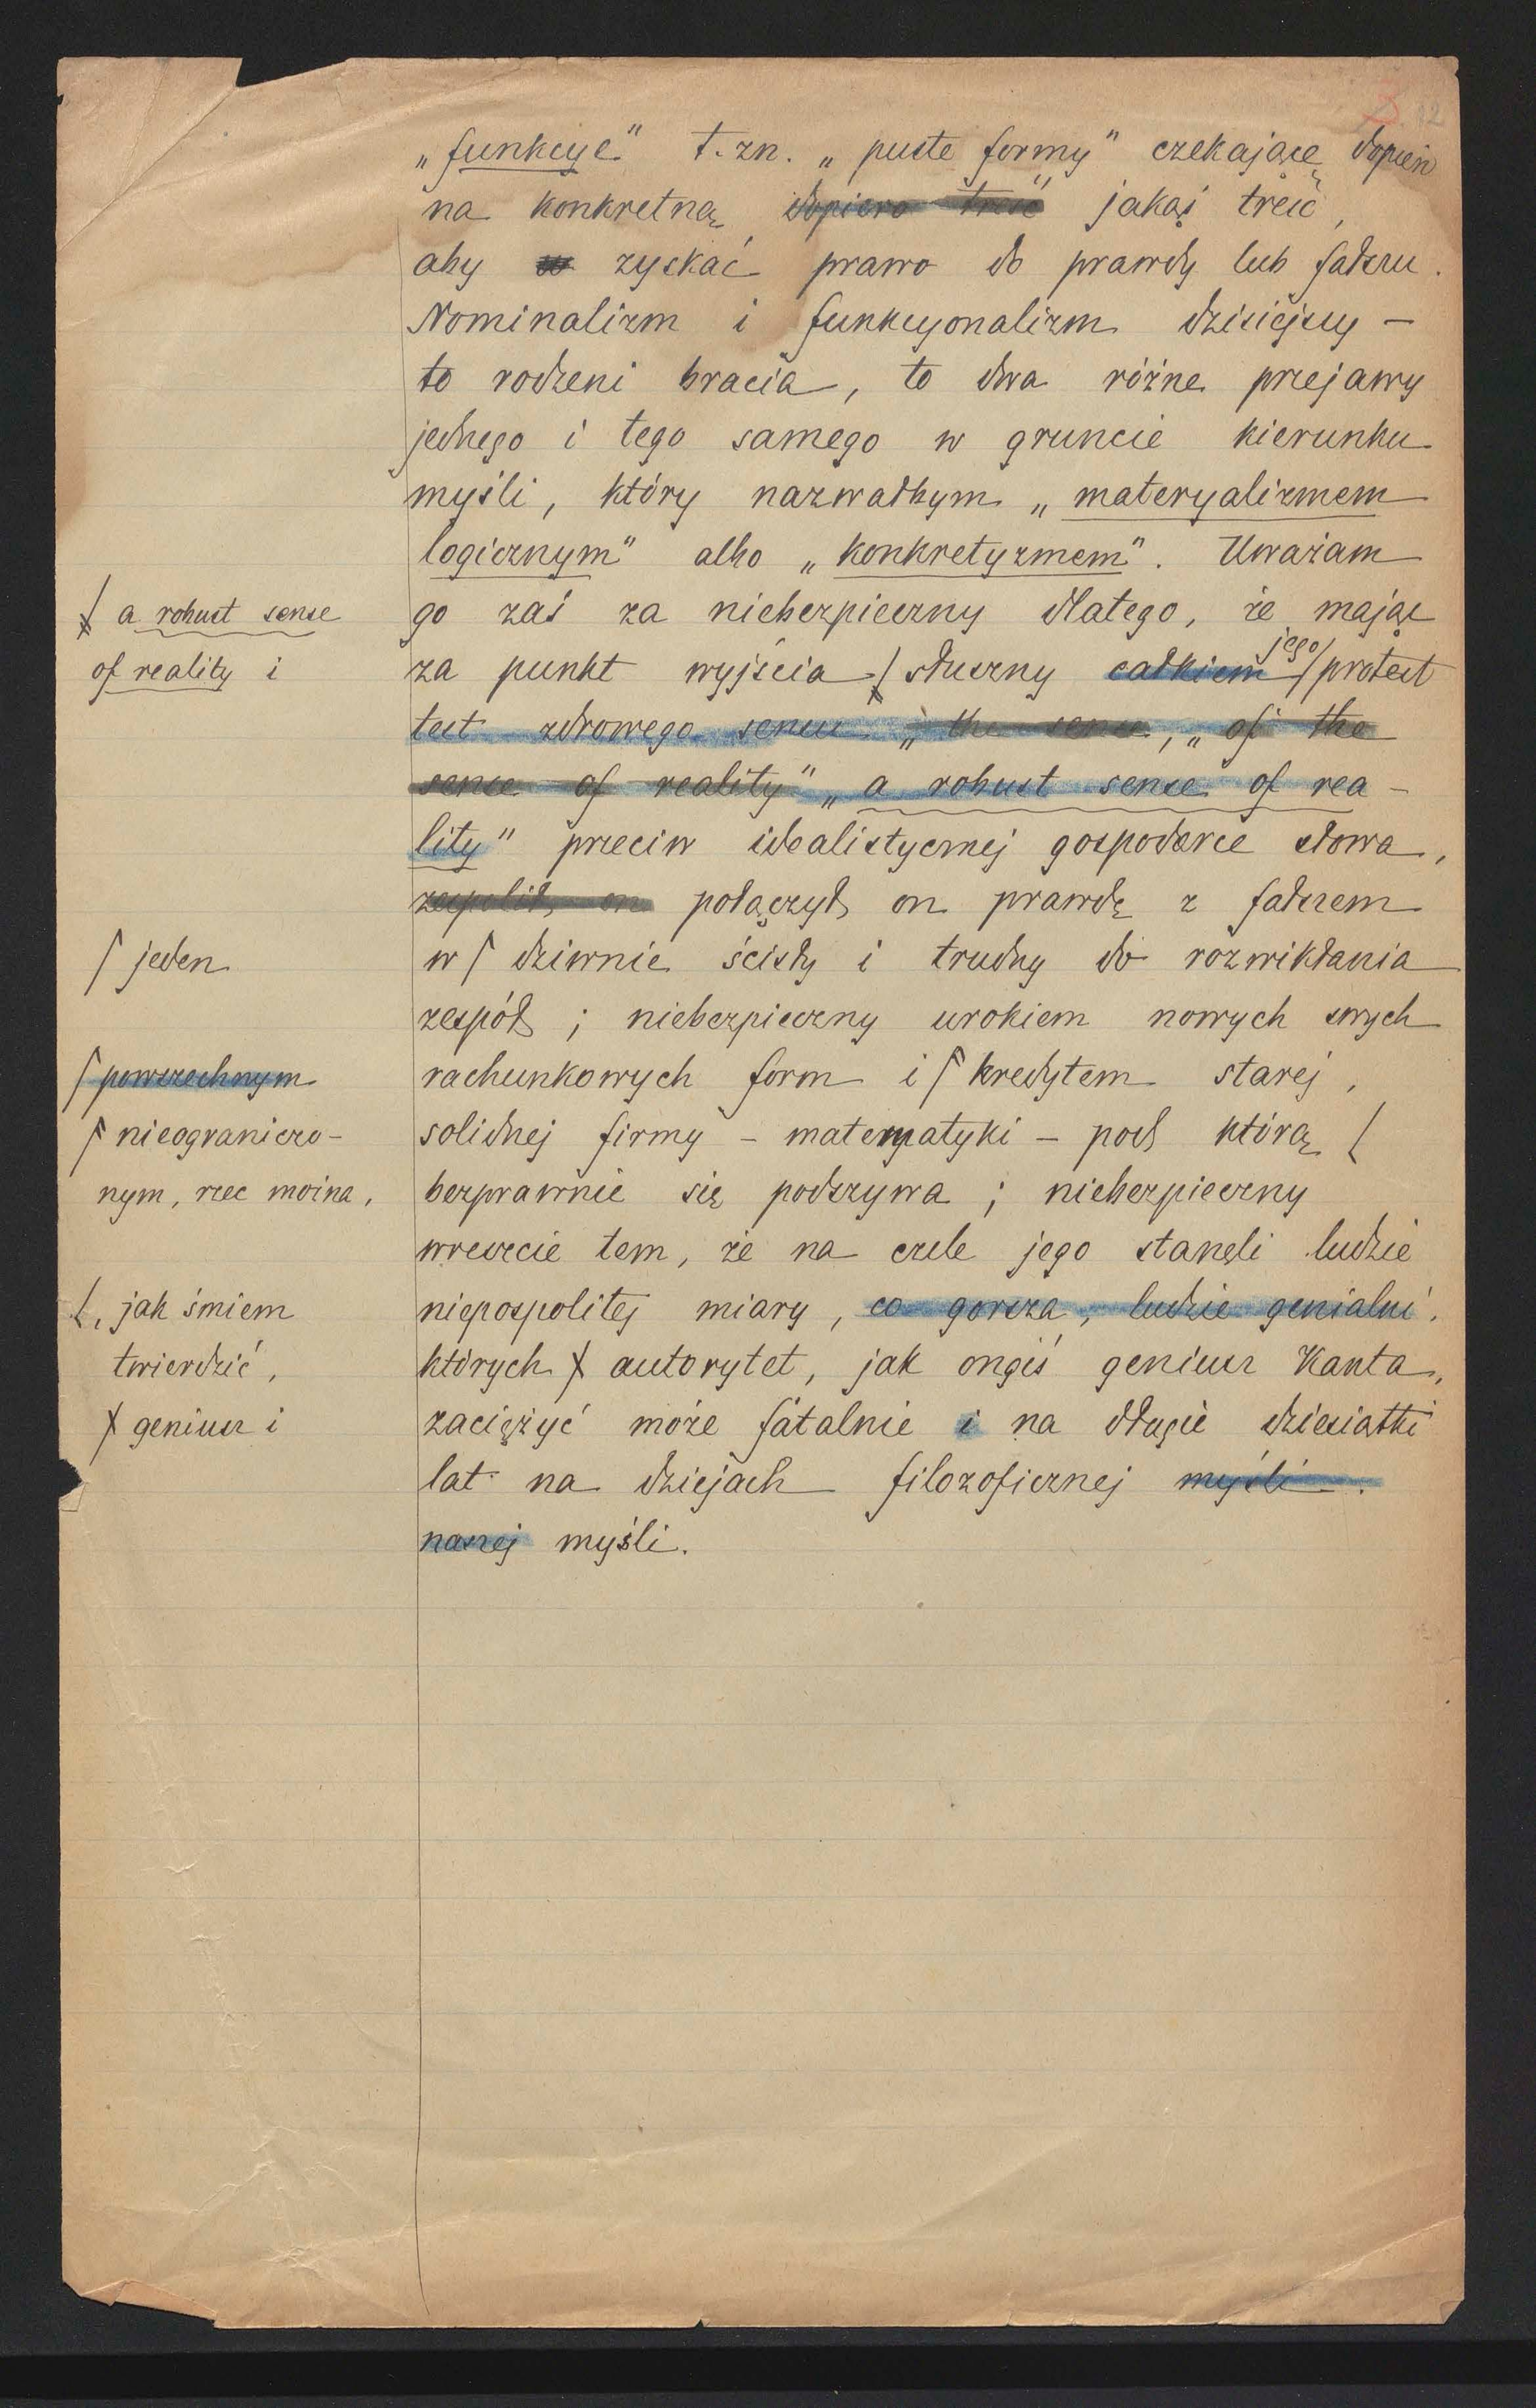 3. 12
„funkcye" t. zn. „puste formy" czekające dopiero
na konkretną dopiero treść jakąś treść,
aby zyskać prawo do prawdy lub fałszu.
Nominalizm i funkcyonalizm dzisiejszy —
to rodzeni bracia, to dwa różne przejawy
jednego i tego samego w gruncie kierunku
myśli, który nazwałbym „materyalizmem
logicznym" albo „konkretyzmem". Uważam
a robust sense
go zaś za niebezpieczny dlatego, że mając
of reality i
jego
za punkt wyjścia słuszny całkiem protest
test zdrowego sensu „the sense, „of the
sense of reality" „a robust sense of rea-
lity" przeciw idealistycznej gospodarce słowa,
zespolił on połączył on prawdę z fałszem
jeden
w dziwnie ścisły i trudny do rozwikłania
zespół; niebezpieczny urokiem nowych swych
powszechnym
rachunkowych form i kredytem starej,
nieograniczo-
solidnej firmy - matematyki - pod którą
nym, rzec można,
bezprawnie się podszywa; niebezpieczny
wreszcie tem, że na czele jego stanęli ludzie
, jak śmiem
niepospolitej miary, co gorsza, ludzie genialni,
twierdzić,
których autorytet, jak ongiś geniusz Kanta,
geniusz i
zaciężyć może fatalnie i na długie dziesiątki
lat na dziejach filozoficznej myśli.
naszej myśli.